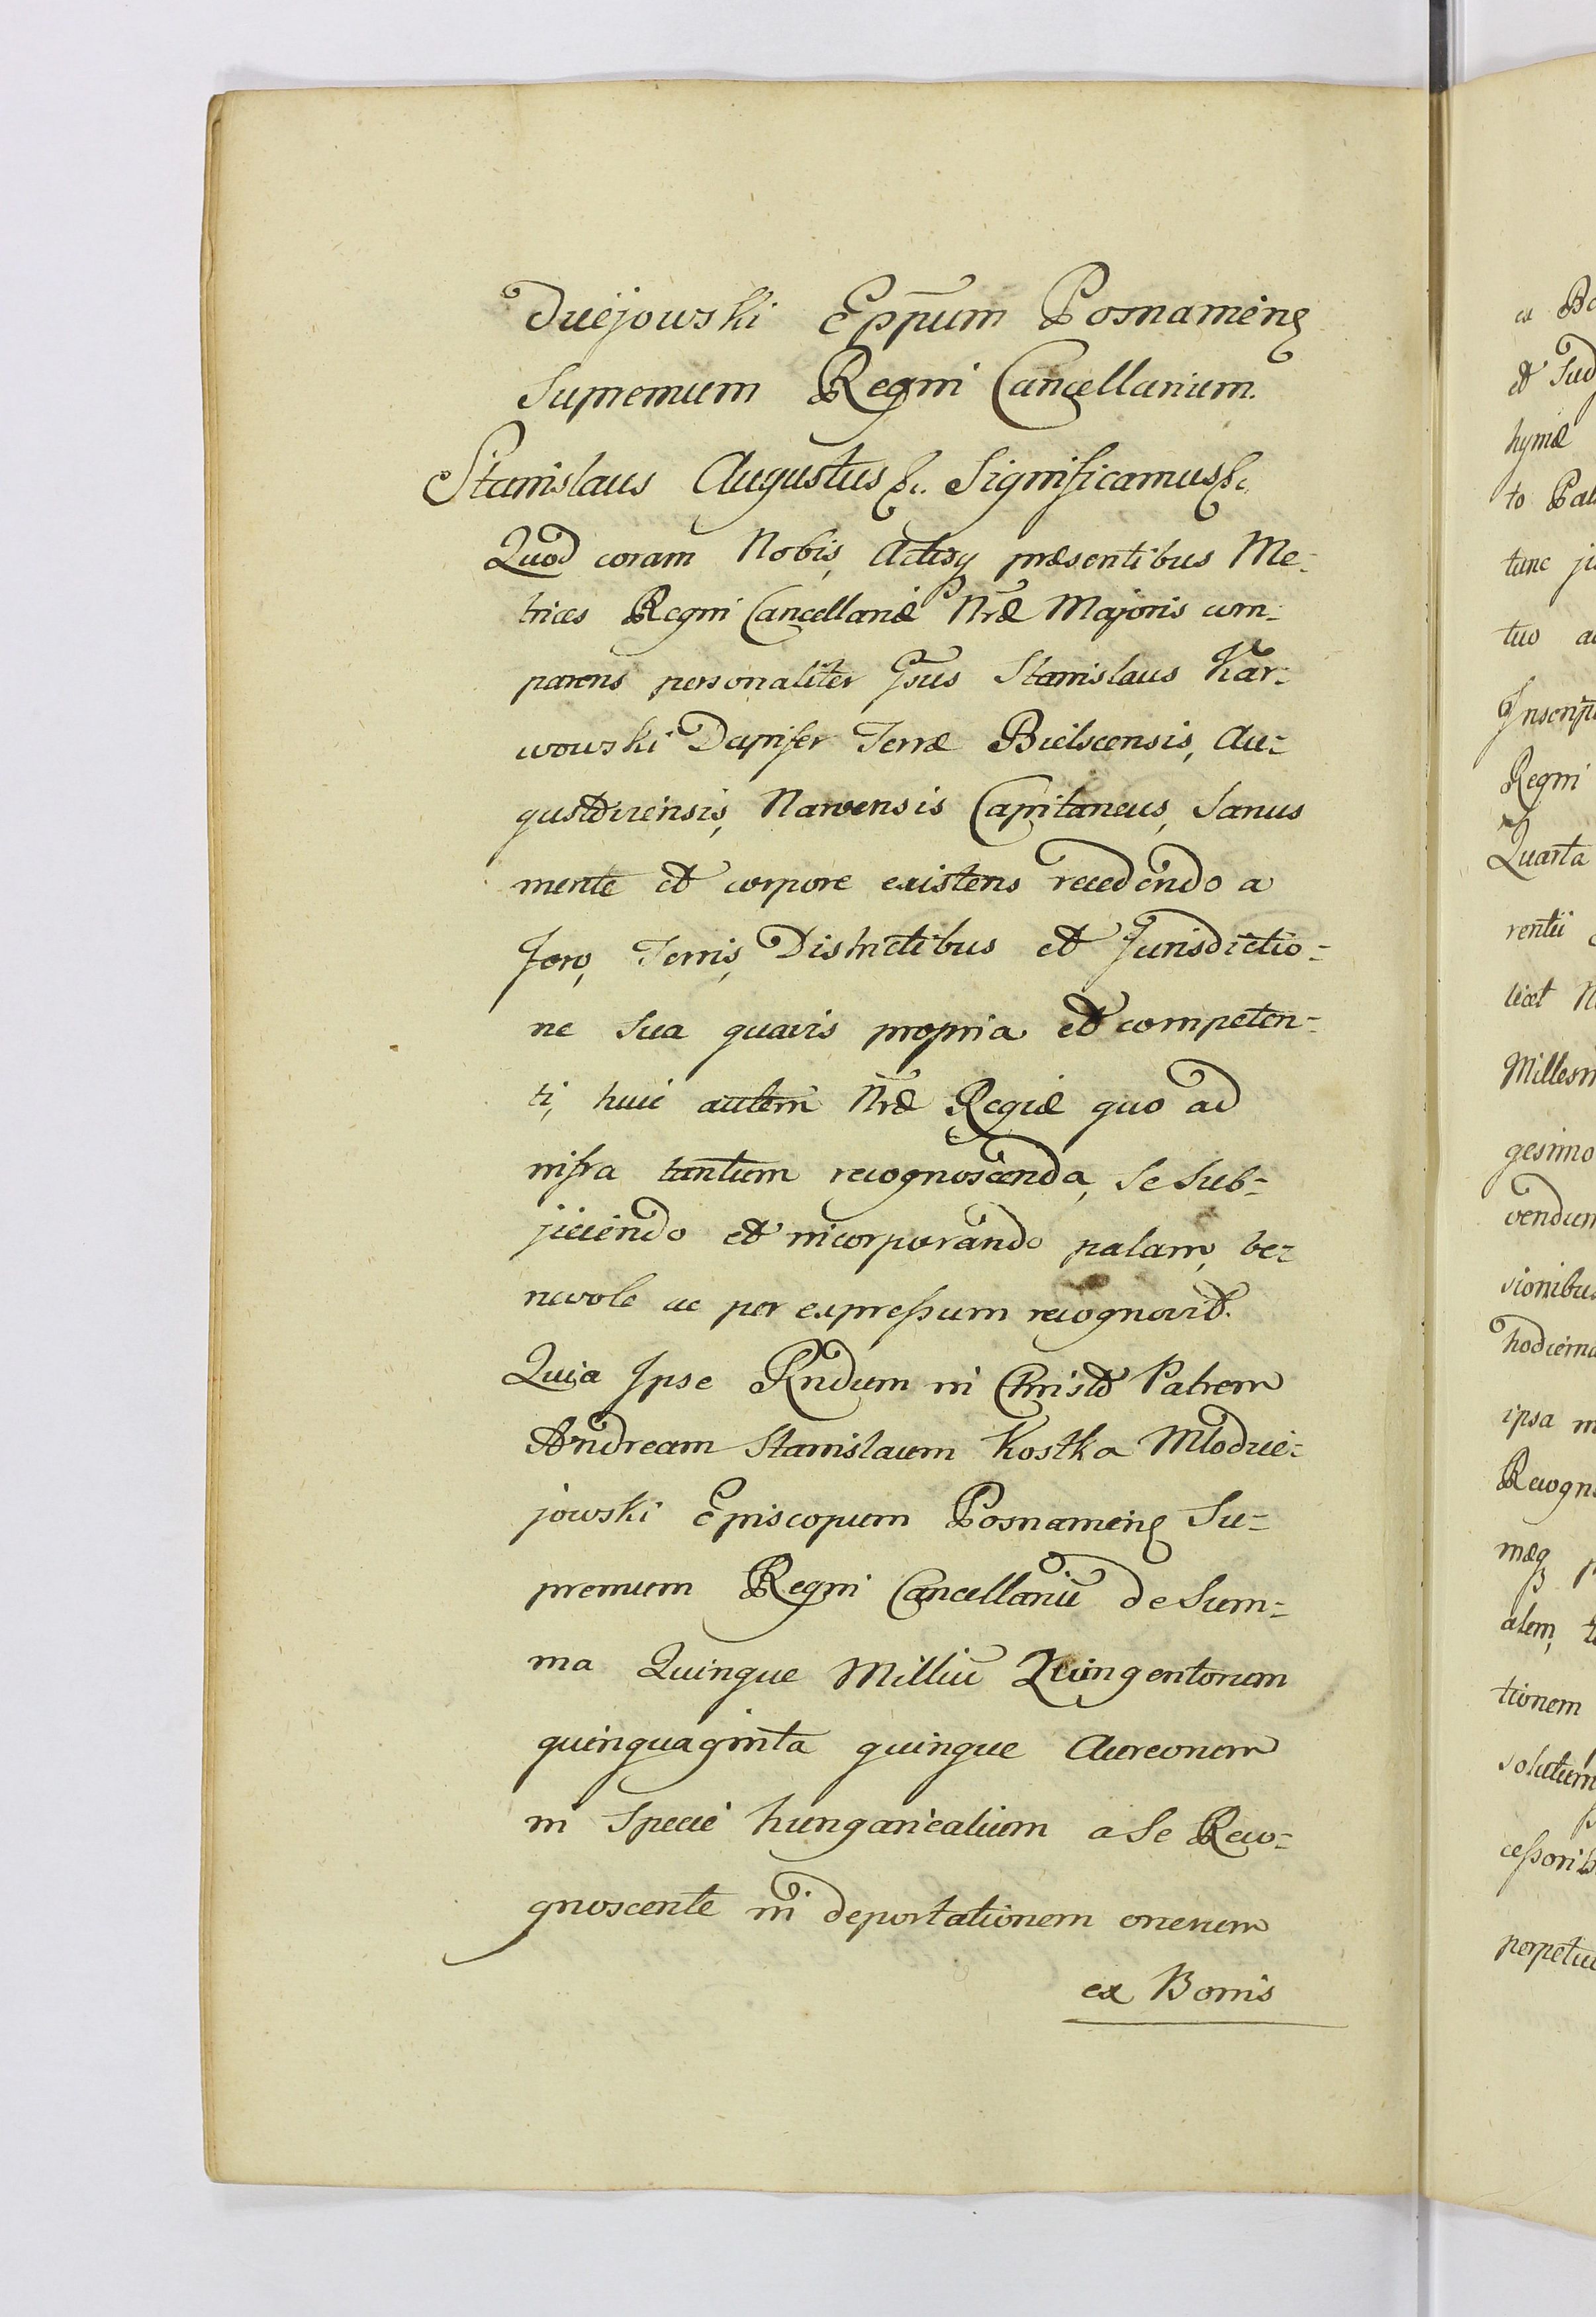 dziejowski Eppum Posnanieng
Supremum Regni Cancellarium.
Stanislaus Augustus &c. Significamus &c.
Quod coram Nobis, Actisq praesentibus Me-
trices Regni Cancellariæ Nræ Majoris com-
parens personaliter Gsus Stanislaus Kar-
wowski Dapifer Terræ Bielscensis, Au-
gustoviensis, Narvensis Capitaneus, Sanus
mente et corpore existens recedendo a
Foro, Terris, Districtibus et Jurisdictio-
ne Sua quavis propria et competen-
ti, huic autem Nræ Regiæ quo ad
infra tantum recognoscenda, Se Sub-
jiciendo et incorporando palam, be-
nevole ac per expressum recognovit.
Quia Ipse Rndum in Christo Patrem
Andream Stanislaum Kostka Mlodzie-
jowski Episcopum Posnanieng Su-
premum Regni Cancellariũ de Sum-
ma Quinque Milliũ Quingentorum
quinquaginta quinque Aureorum
in Specie hungaricalium a Se Reco-
gnoscente in deportationem onerum
ex Bonis
ex Bo
et Jud
hymæ
to Pal
tunc ju
tuo a
Inscrip
Regni
Quarta
rentii
licet N
Millesi
gesimo
vendum
sionibus
hodierna
ipsa m
Recogn
mæq p
alem, t
tionem
solutum
cessorib
perpetu